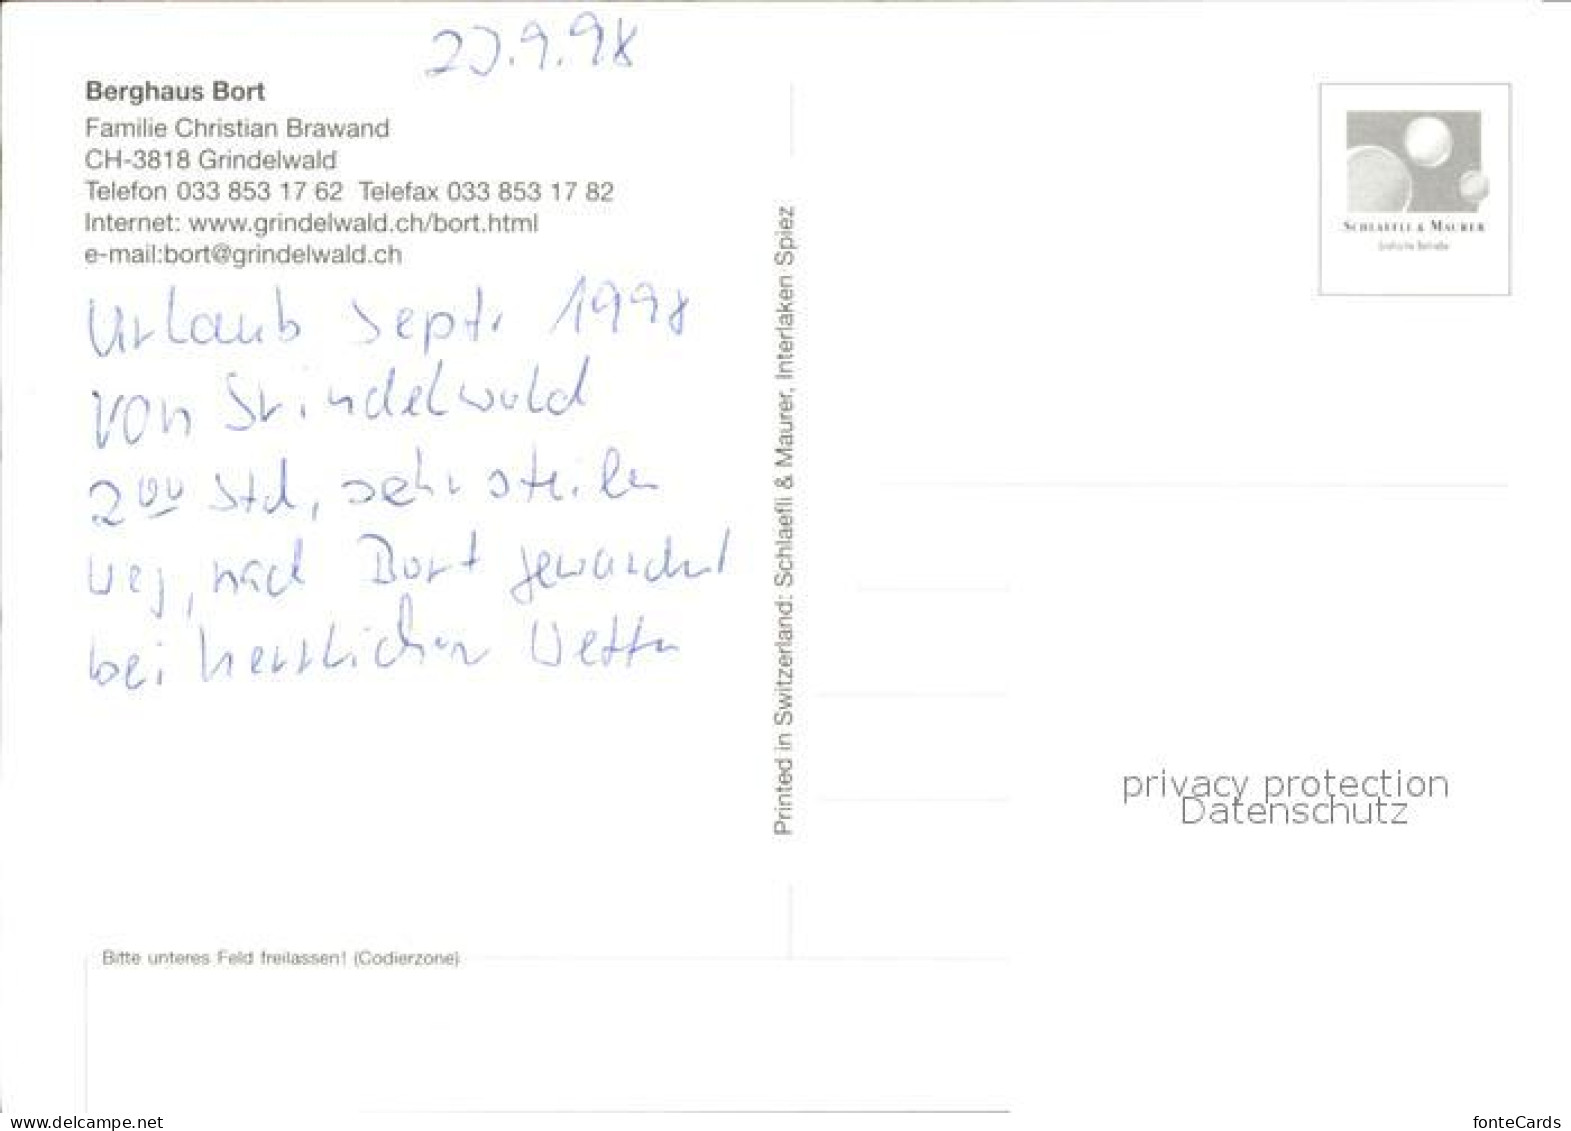 23.9.98
Berghaus Bort
Familie Christian Brawand
CH-3818 Grindelwald
Telefon 033 853 17 62 Telefax 033 853 17 82
Internet: www.grindelwald.ch/bort.html
e-mail:bort@grindelwald.ch
Urlaub Sept. 1998
von Grindelwald
2⁰⁰ Std, sehr steilen
Weg, nach Bort gewandert
bei herrlichen Wetter
Printed in Switzerland: Schlaefli & Maurer, Interlaken Spiez
SCHLAEFLI & MAURER
privacy protection
Datenschutz
Bitte unteres Feld freilassen! (Codierzone)
www.ansichtskartenversand.com
fonteCards